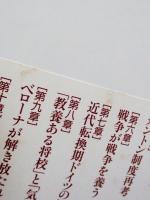 カントン制度再考
[第六章]
戦争が戦争を養う
[第七章]
近代転換期ドイツの
[第八章]
「教養ある将校」と「気
[第九章]
ベローナが解き放たれ
[第十章